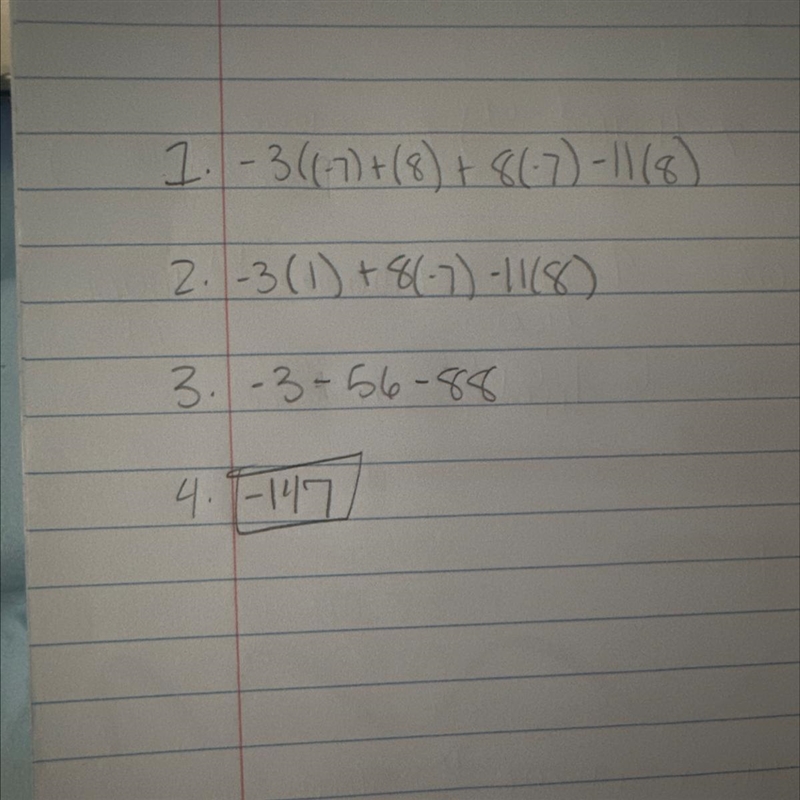 1. -3((-7)+(8)+8(-7)-11(8)
2. -3(1)+8(-7)-11(8)
3. -3-56-88
4. -147